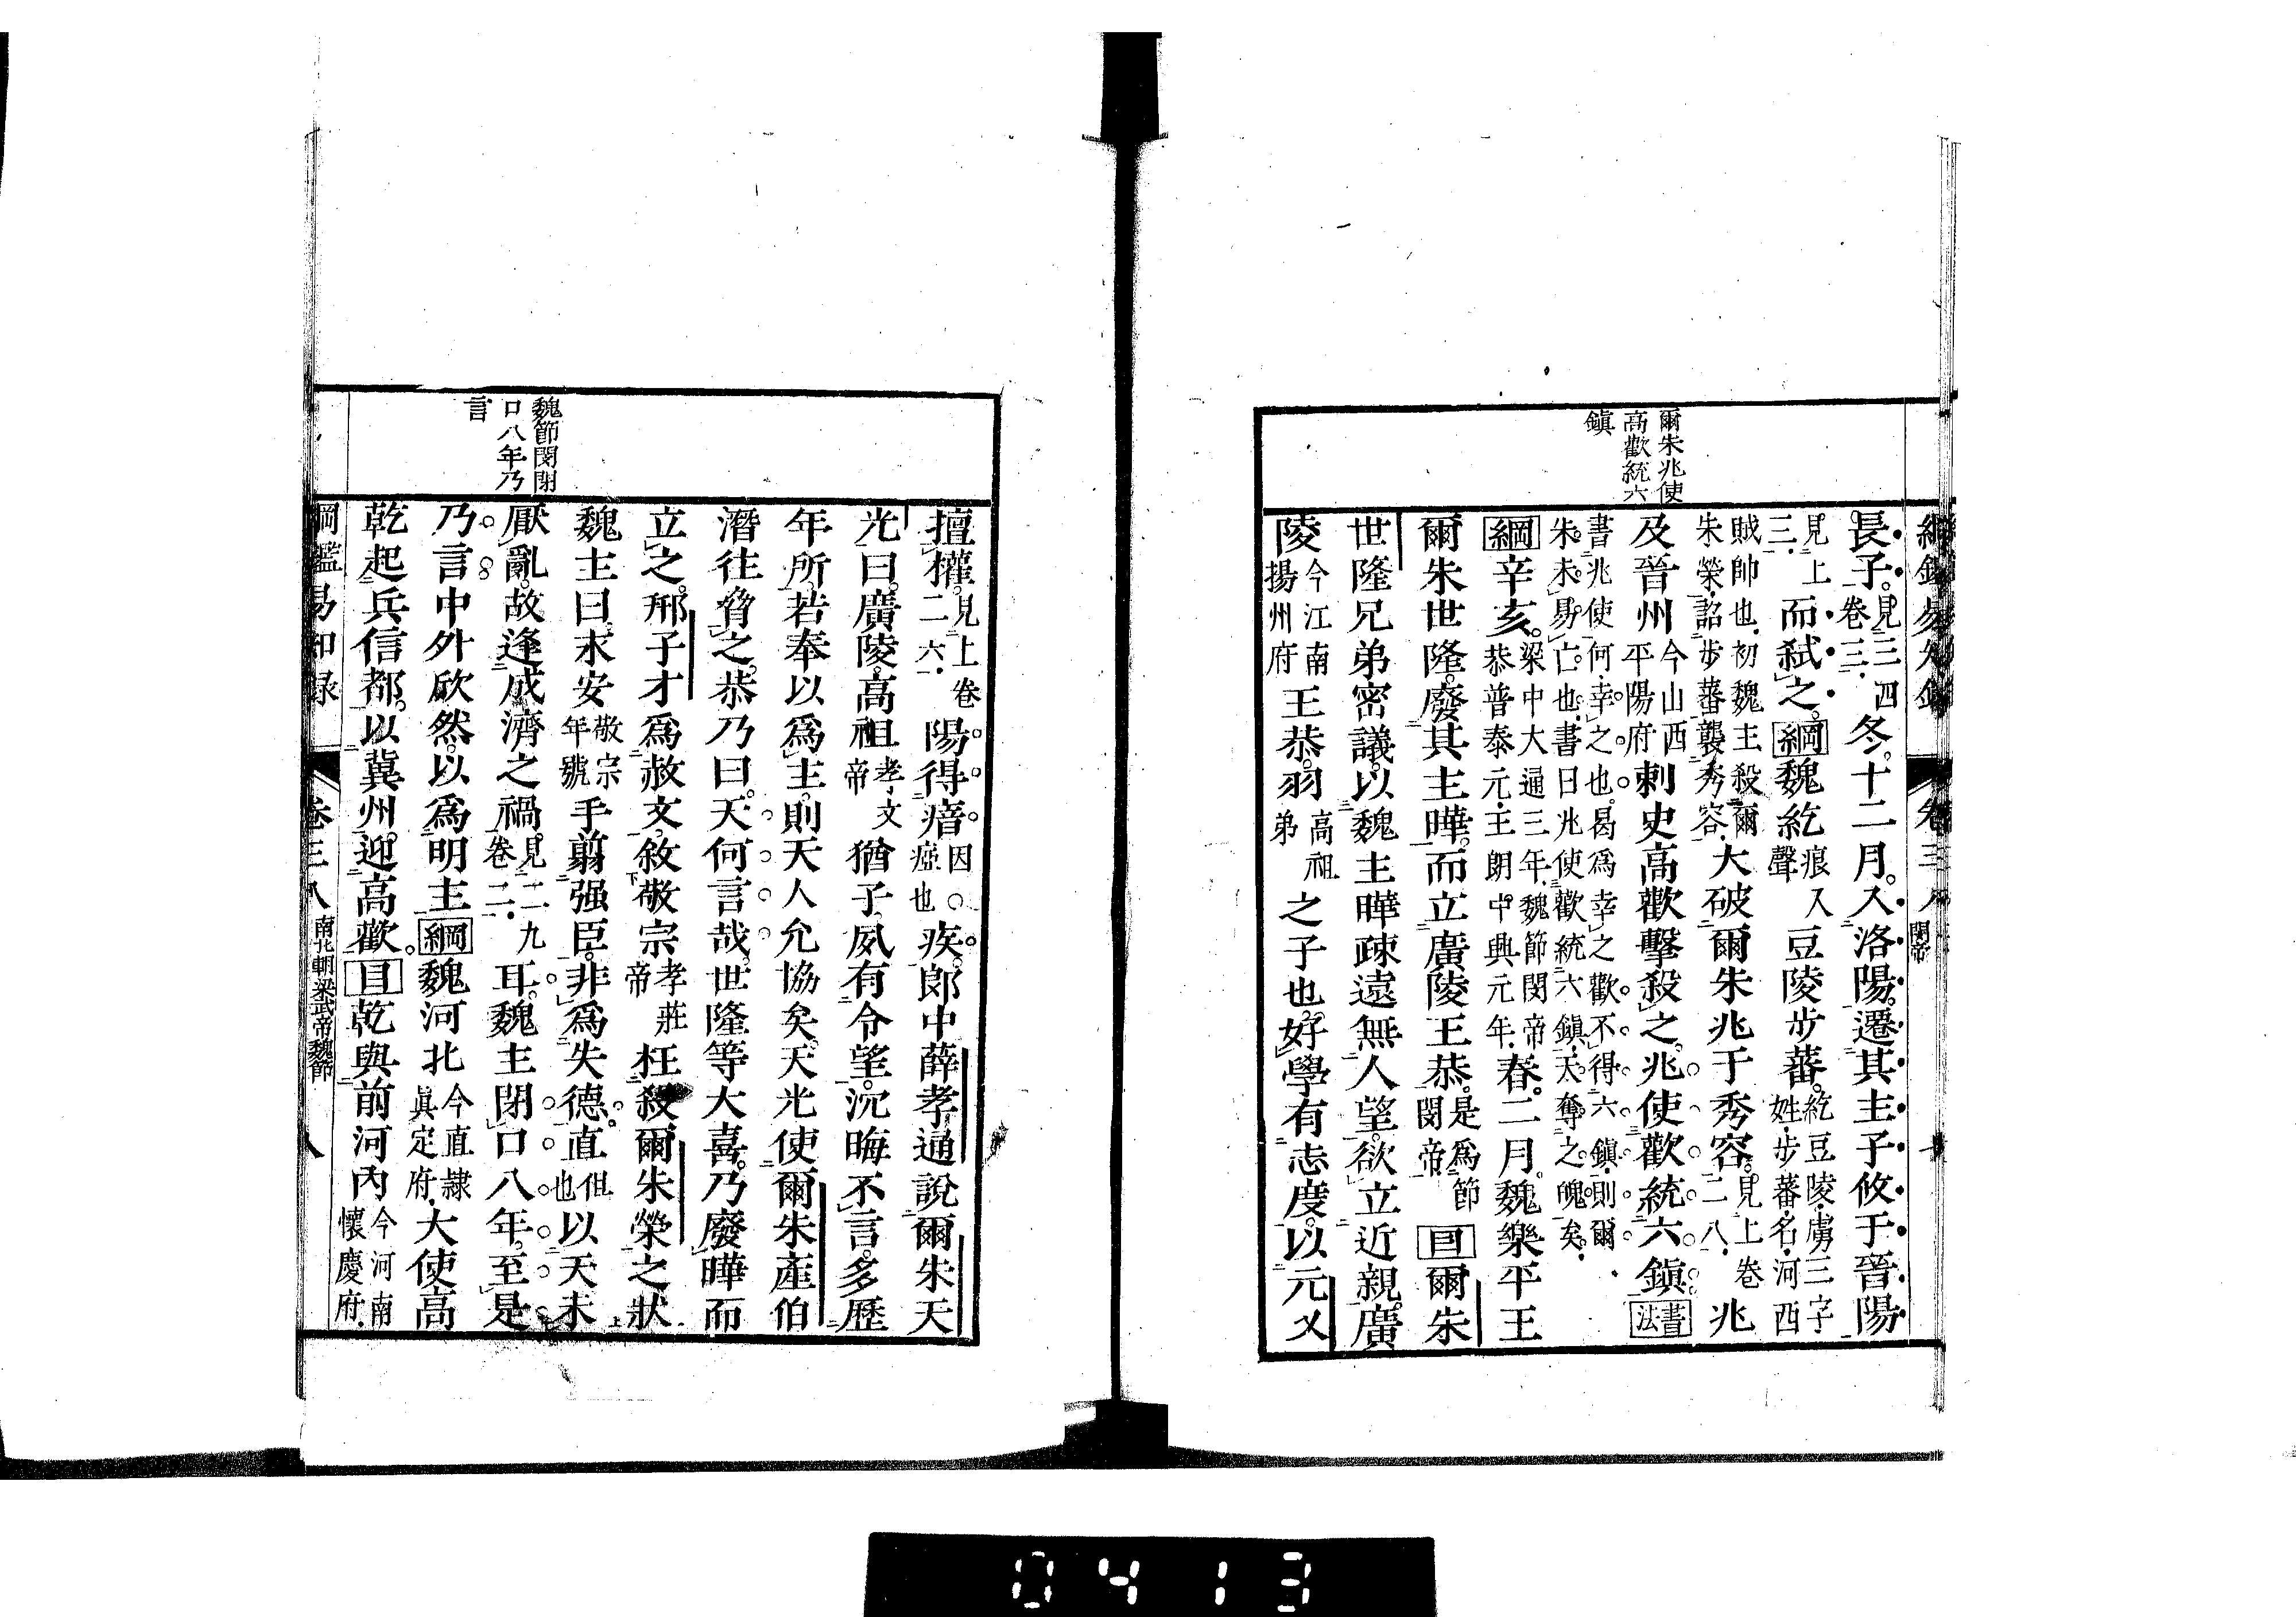 爾朱兆使
高歡統六
鎭
長子見三四卷三三冬十二月入洛陽遷其主子攸于晉陽
見上三而弑之綱魏紇痕入聲豆陵步蕃紇豆陵虜三字姓步蕃名河西
賊帥也初魏主殺爾朱榮詔步蕃襲秀容大破爾朱兆于秀容見上卷二八兆
及晉州今山西平陽府刺史高歡擊殺之兆使歡統六鎭書法
書兆使何幸之也曷爲幸之歡不得六鎭則爾朱未易亡也書曰兆使歡統六鎭天奪之魄矣
綱辛亥梁中大通三年魏節閔帝恭普泰元主朗中興元年春二月魏樂平王
爾朱世隆廢其主曄而立廣陵王恭是爲節閔帝目爾朱
世隆兄弟密議以魏主曄疎遠無人望欲立近親廣
陵今江南揚州府王恭羽高祖弟之子也好學有志度以元乂
魏節閔閉
口八年乃
言
擅權見上卷二六陽得瘖因瘂也疾郎中薛孝通說爾朱天
光曰廣陵高祖孝文帝猶子夙有令望沉晦不言多歷
年所若奉以爲主則天人允協矣天光使爾朱產伯
潛往脅之恭乃曰天何言哉世隆等大喜乃廢曄而
立之邢子才爲赦文敘敬宗孝莊帝枉殺爾朱榮之狀
魏主曰永安敬宗年號手翦强臣非爲失德直但也以天未
厭亂故逢成濟之禍見二九卷二二耳魏主閉口八年至是
乃言中外欣然以爲明主綱魏河北今直隸眞定府大使高
乾起兵信都以冀州迎高歡目乾與前河內今河南懷慶府
綱鑑易知録 卷三八 南北朝梁武帝魏節 八